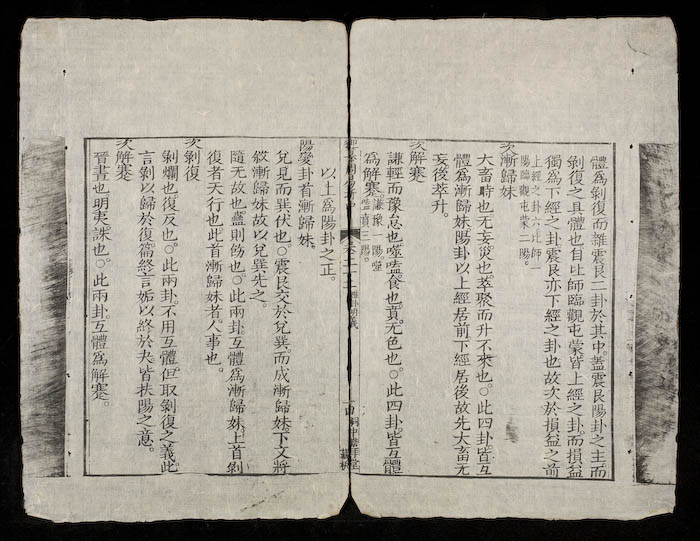 體爲剝復而雜震艮二卦於其中。蓋震艮陽卦之主。而
剝復之具體也自比師臨觀屯蒙皆上經之卦而損益
獨爲下經之卦震艮亦下經之卦也故次於損益之前
上經之卦六比師一
陽臨觀屯蒙二陽。
次漸歸妹
大畜時也无妄災也。萃聚而升不來也。○此四卦皆互
體爲漸歸妹陽卦以上經居前下經居後故先大畜无
妄後萃升。
次解蹇
謙輕而豫怠也噬嗑食也賁无色也。○此四卦皆互體
爲解蹇謙豫一陽噬
嗑賁三陽。
以上爲陽卦之正。
陽變卦首漸歸妹。
兌見而巽伏也。○震艮交於兌巽。而成漸歸妹。下文將
敘漸歸妹故以兌巽先之。
隨无故也蠱則飭也。○此兩卦互體爲漸歸妹。上首剝
復者天行也此首漸歸妹者人事也。
次剝復
剝爛也復反也。○此兩卦。不用互體但取剝復之義。此
言剝以歸於復篇終言姤以終於夬皆扶陽之意。
次解蹇
晉晝也明夷誅也。○此兩卦互體爲解蹇。